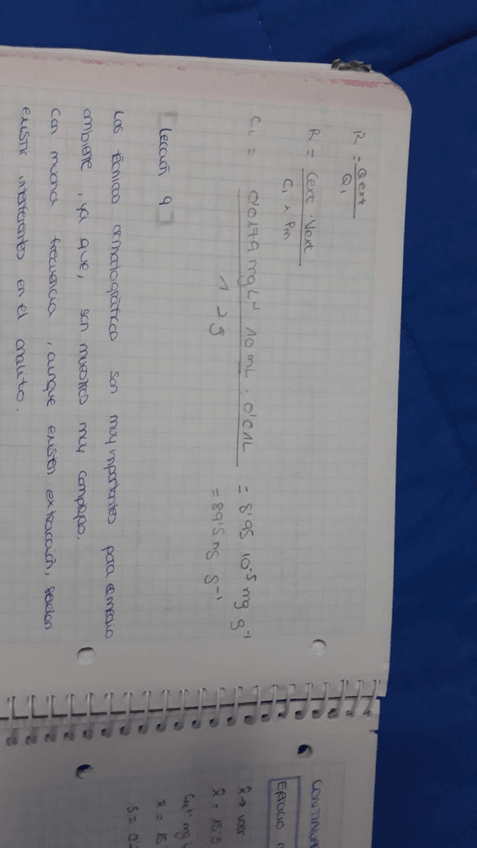 R = Qext / Q1
R = Cext · Vext / C1 x Pm
C1 = 0'0179 mg L⁻¹ 10 mL · 0'01L / 1 2 g = 8'95 10⁻⁵ mg g⁻¹
= 89'5 ng g⁻¹
[Lección 9]
Las técnicas cromatográficas son muy importantes para
ambiente, ya que, son muestras muy complejas.
Con mucha frecuencia, aunque existen extracción, pueden
existir interferentes en el analito.
CONTINUA
x̄ → valor
x̄ = 15'3
x̄ = 15
S = 0'2